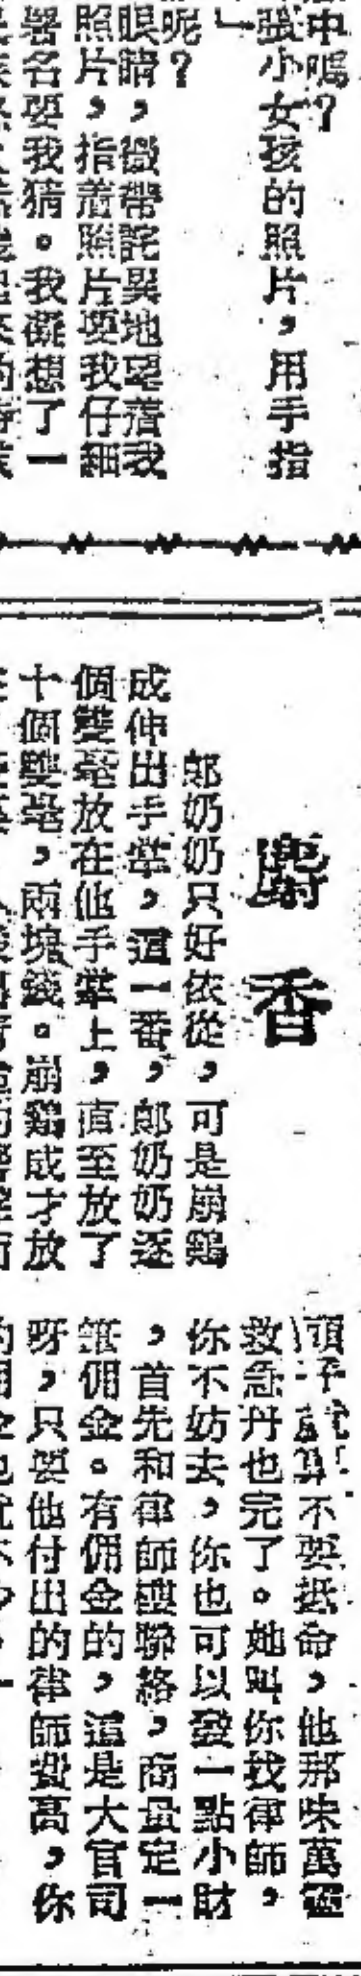 中嗎?
張小女孩的照片,用手指
」
呢?
眼睛,微帶詫異地望着我
照片,指着照片要我仔細
署名要我猜。我凝想了一
麝香
郎奶奶只好依從,可是崩鷄
成伸出手掌,這一番,郎奶奶逐
個雙毫放在他手掌上,直至放了
十個雙毫,兩塊錢。崩鷄成才放
不要抵命,他那味萬靈
救急丹也完了。她叫你找律師,
你不妨去,你也可以發一點小財
,首先和律師樓聯絡,商量定一
筆佣金。有佣金的,這是大官司
呀,只要他付出的律師費高,你